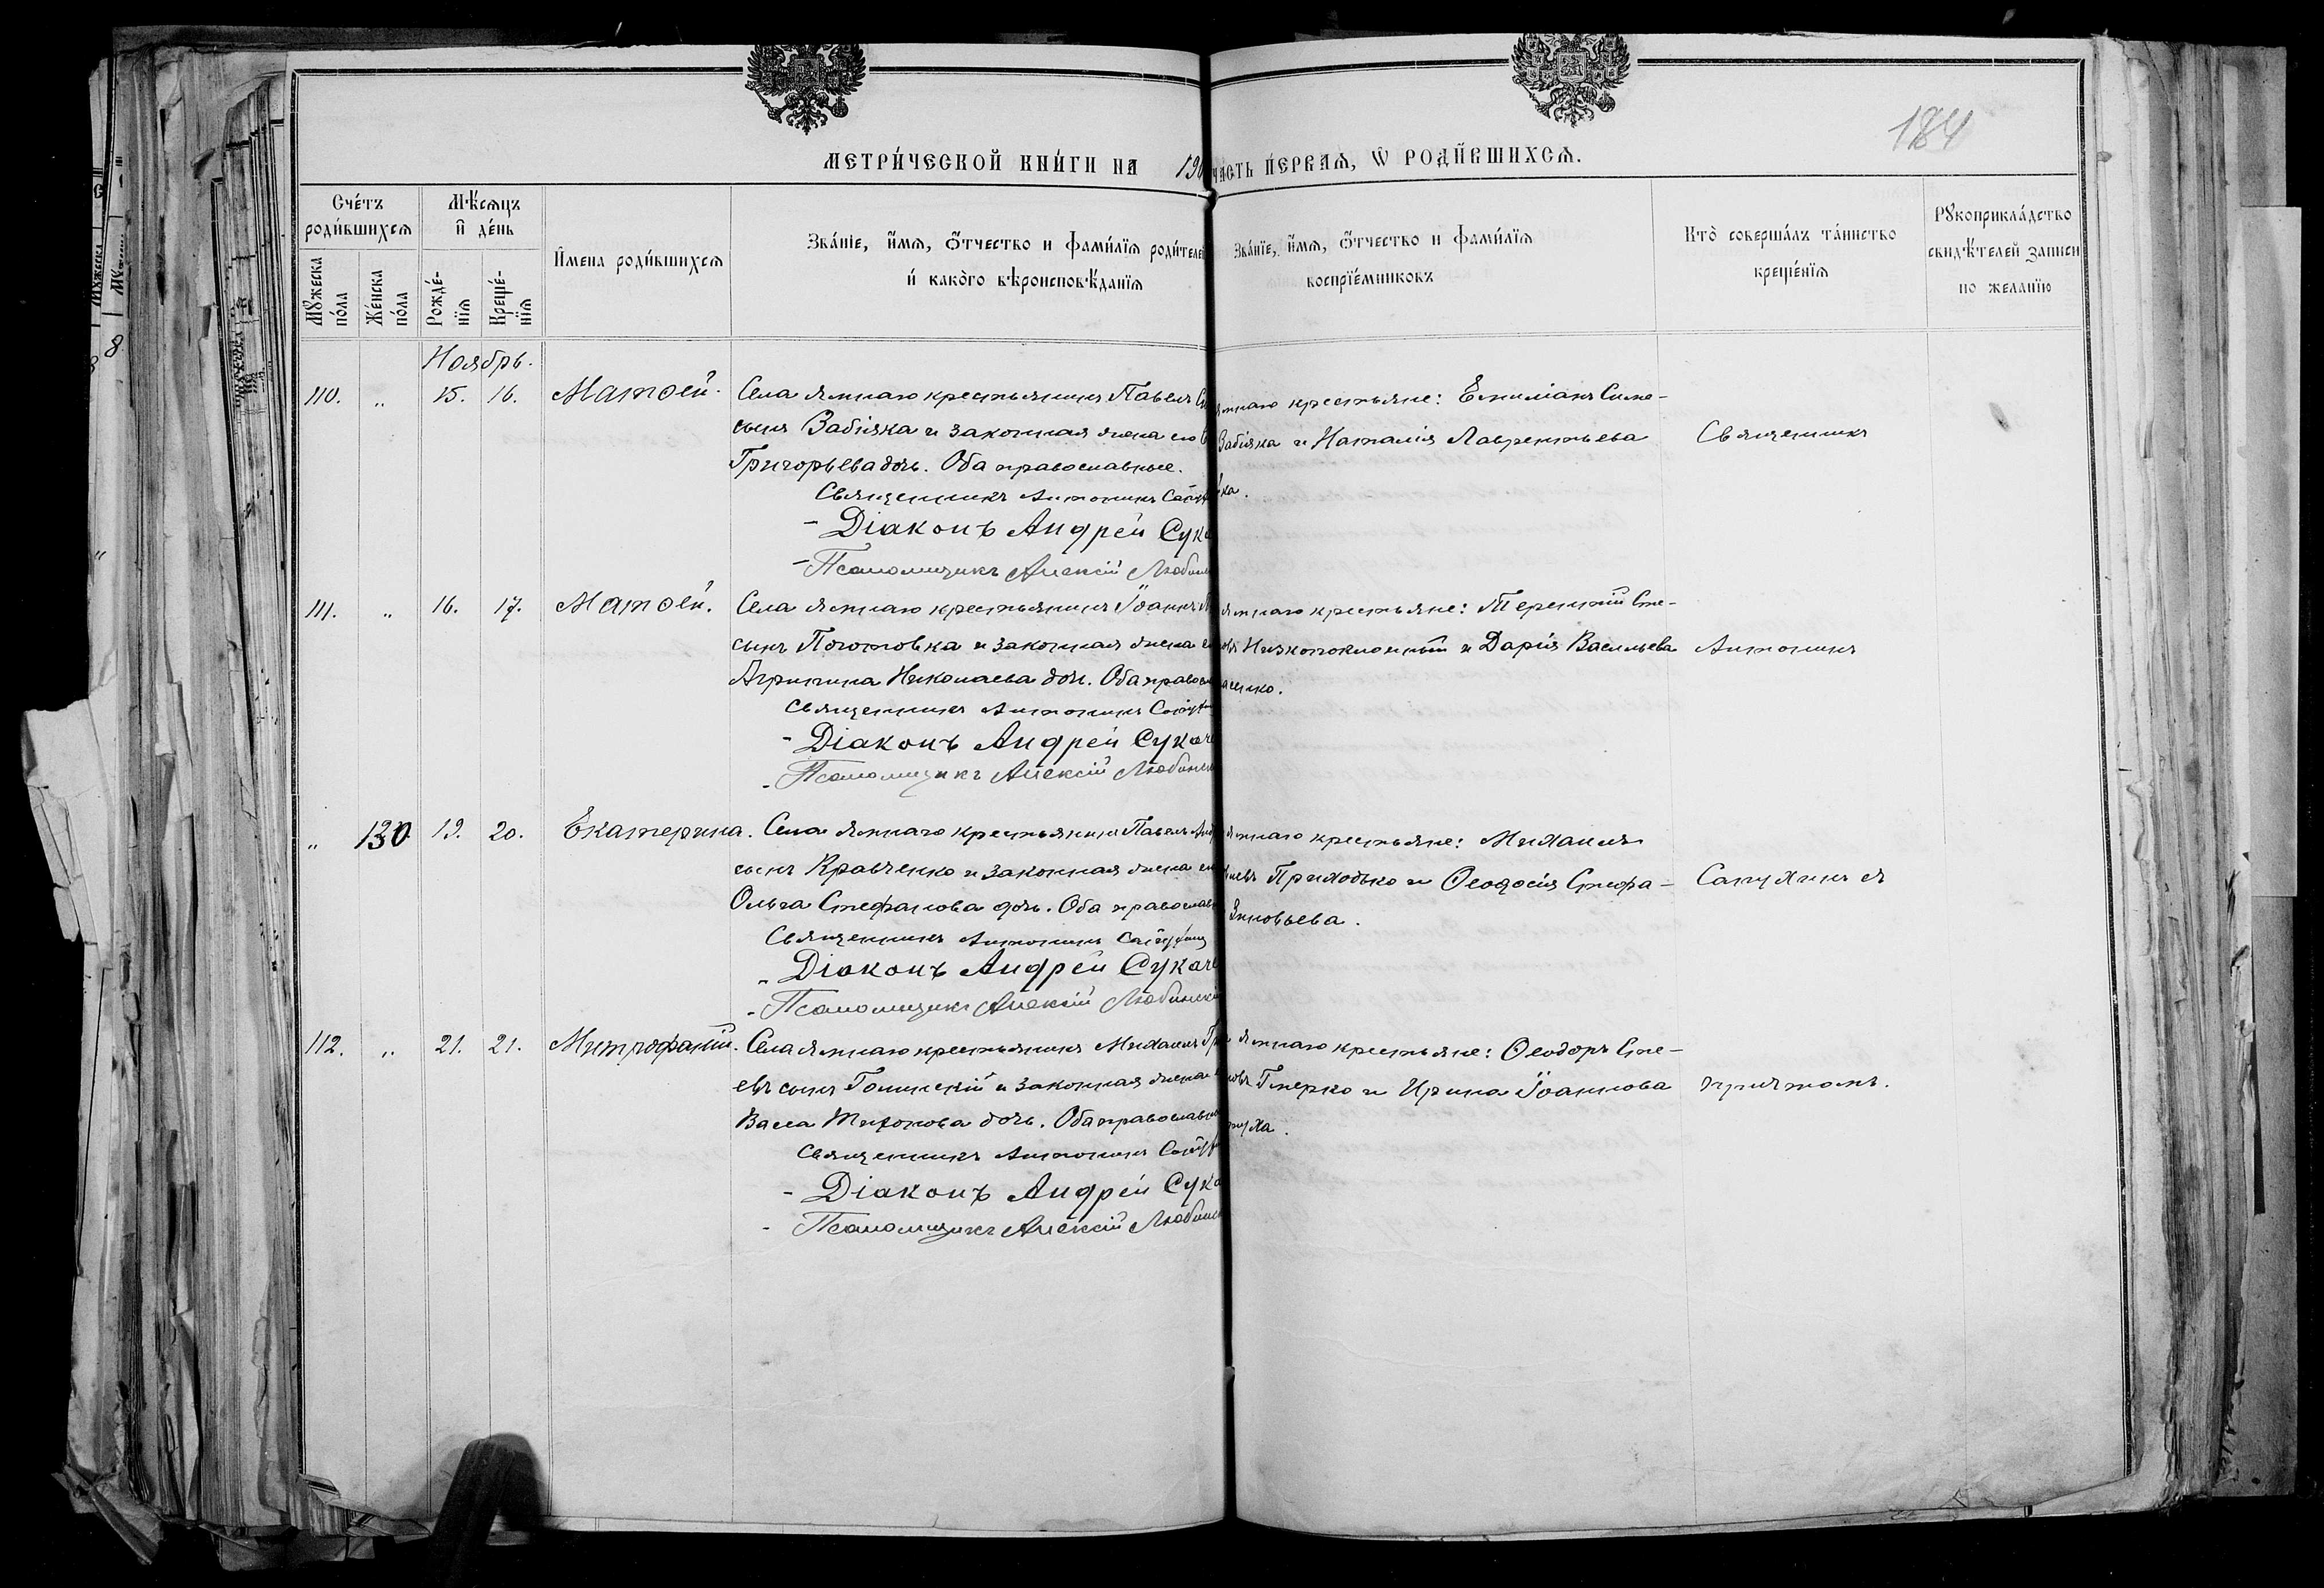 184
МЕТРИ́ЧЕСКОЙ КНИ́ГИ НА 190
ЧАСТЬ ПЕ́РВАЯ, Ѡ РОДИ́ВШИХСЯ.
Сче́тъ роди́вшихся
Мѣ́сяцъ и де́нь
Имена роди́вшихся
Зва́нїе, и́мя, о́тчество и фами́лїя роди́телей
и како́го вѣроисповѣ́данїя
Зва́нїе, и́мя, о́тчество и фами́лїя
воспрїе́мниковъ
Кто̀ соверша́лъ та́инство
креще́нїя
Рꙋкоприкла́дство
свидѣ́телей записи
по желанїю
Мꙋжеска по́ла
Же́нска по́ла
Рожде́нїя
Креще́нїя
Ноябрь.
110. „ 15. 16. Матѳей. Села Ямнаго крестьянинъ Павелъ
сынъ Забіяка и законная жена его
Григорьева дочь. Оба православные.
Священникъ Антонинъ
- Діаконъ Андрей
- Псаломщикъ Алексій
Ямнаго крестьяне: Емиліанъ Симе-
Забіяка и Наталія Лаврентьева
Священникъ
111. „ 16. 17. Матѳей. Села Ямнаго крестьянинъ Іоаннъ
сынъ Пототовка и законная жена
Агрипина Николаева дочь. Оба
Священникъ Антонинъ
- Діаконъ Андрей
- Псаломщикъ Алексій
Ямнаго крестьяне: Терентій Сте-
Низкопоклонный и Дарія Васильева
Антонинъ
„ 130 19. 20. Екатерина. Села Ямнаго крестьянинъ Павелъ
сынъ Кравченко и законная жена
Ольга Стефанова дочь. Оба
Священникъ Антонинъ
- Діаконъ Андрей
- Псаломщикъ Алексій
Ямнаго крестьяне: Михаилъ
Приходько и Ѳеодосія Стефа-
Зиновьева.
Сапухинъ съ
112. „ 21. 21. Митрофаній. Села Ямнаго крестьянинъ Михаилъ
евъ сынъ Голинскій и законная жена
Васса Тихонова дочь. Оба
Священникъ Антонинъ
- Діаконъ Андрей
- Псаломщикъ Алексій
Ямнаго крестьяне: Ѳеодоръ Сте-
Гмерко и Ирина Іоаннова
причтомъ.